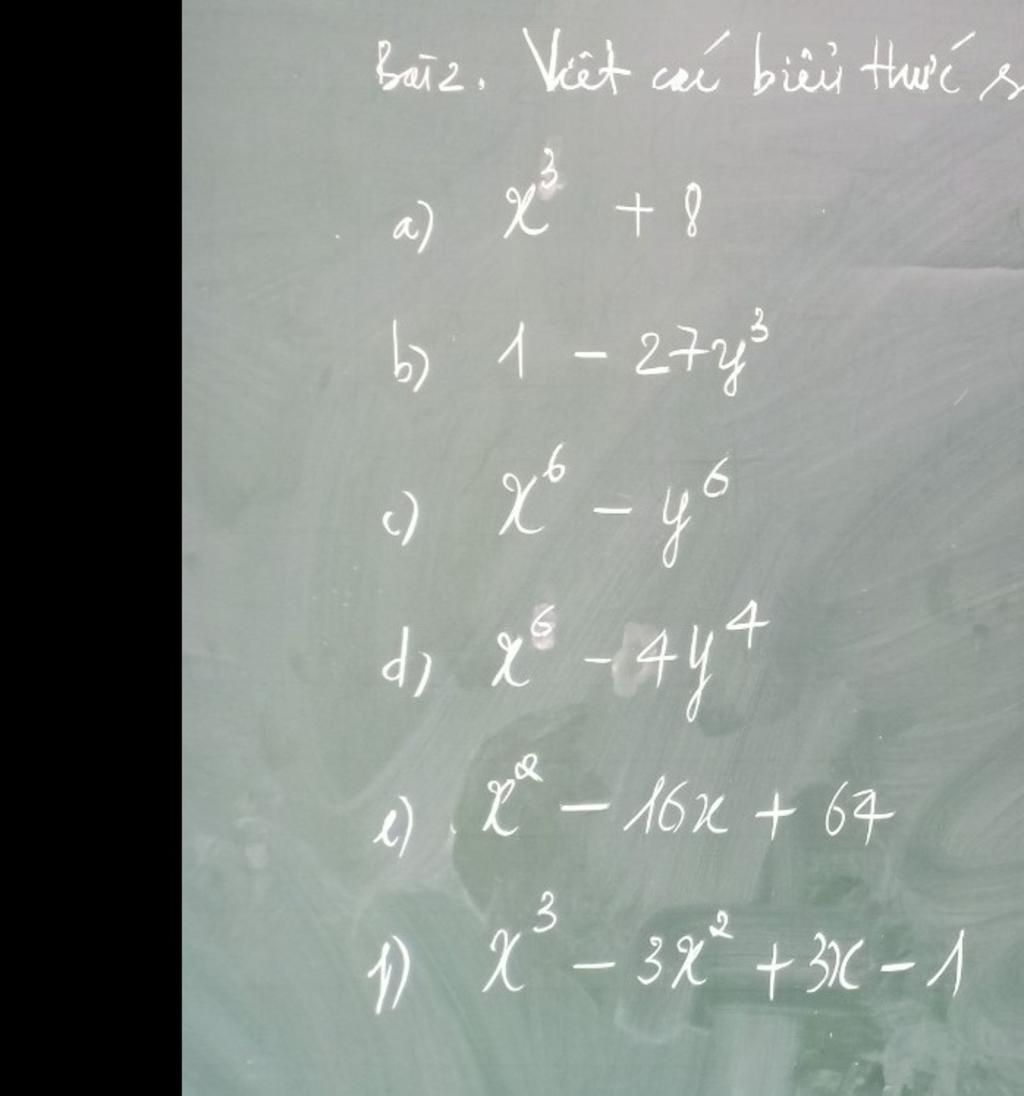 Bài 2. Viết các biểu thức s
a) x³ + 8
b) 1 - 27y³
c) x⁶ - y⁶
d) x⁶ - 4y⁴
e) x² - 16x + 64
f) x³ - 3x² + 3x - 1